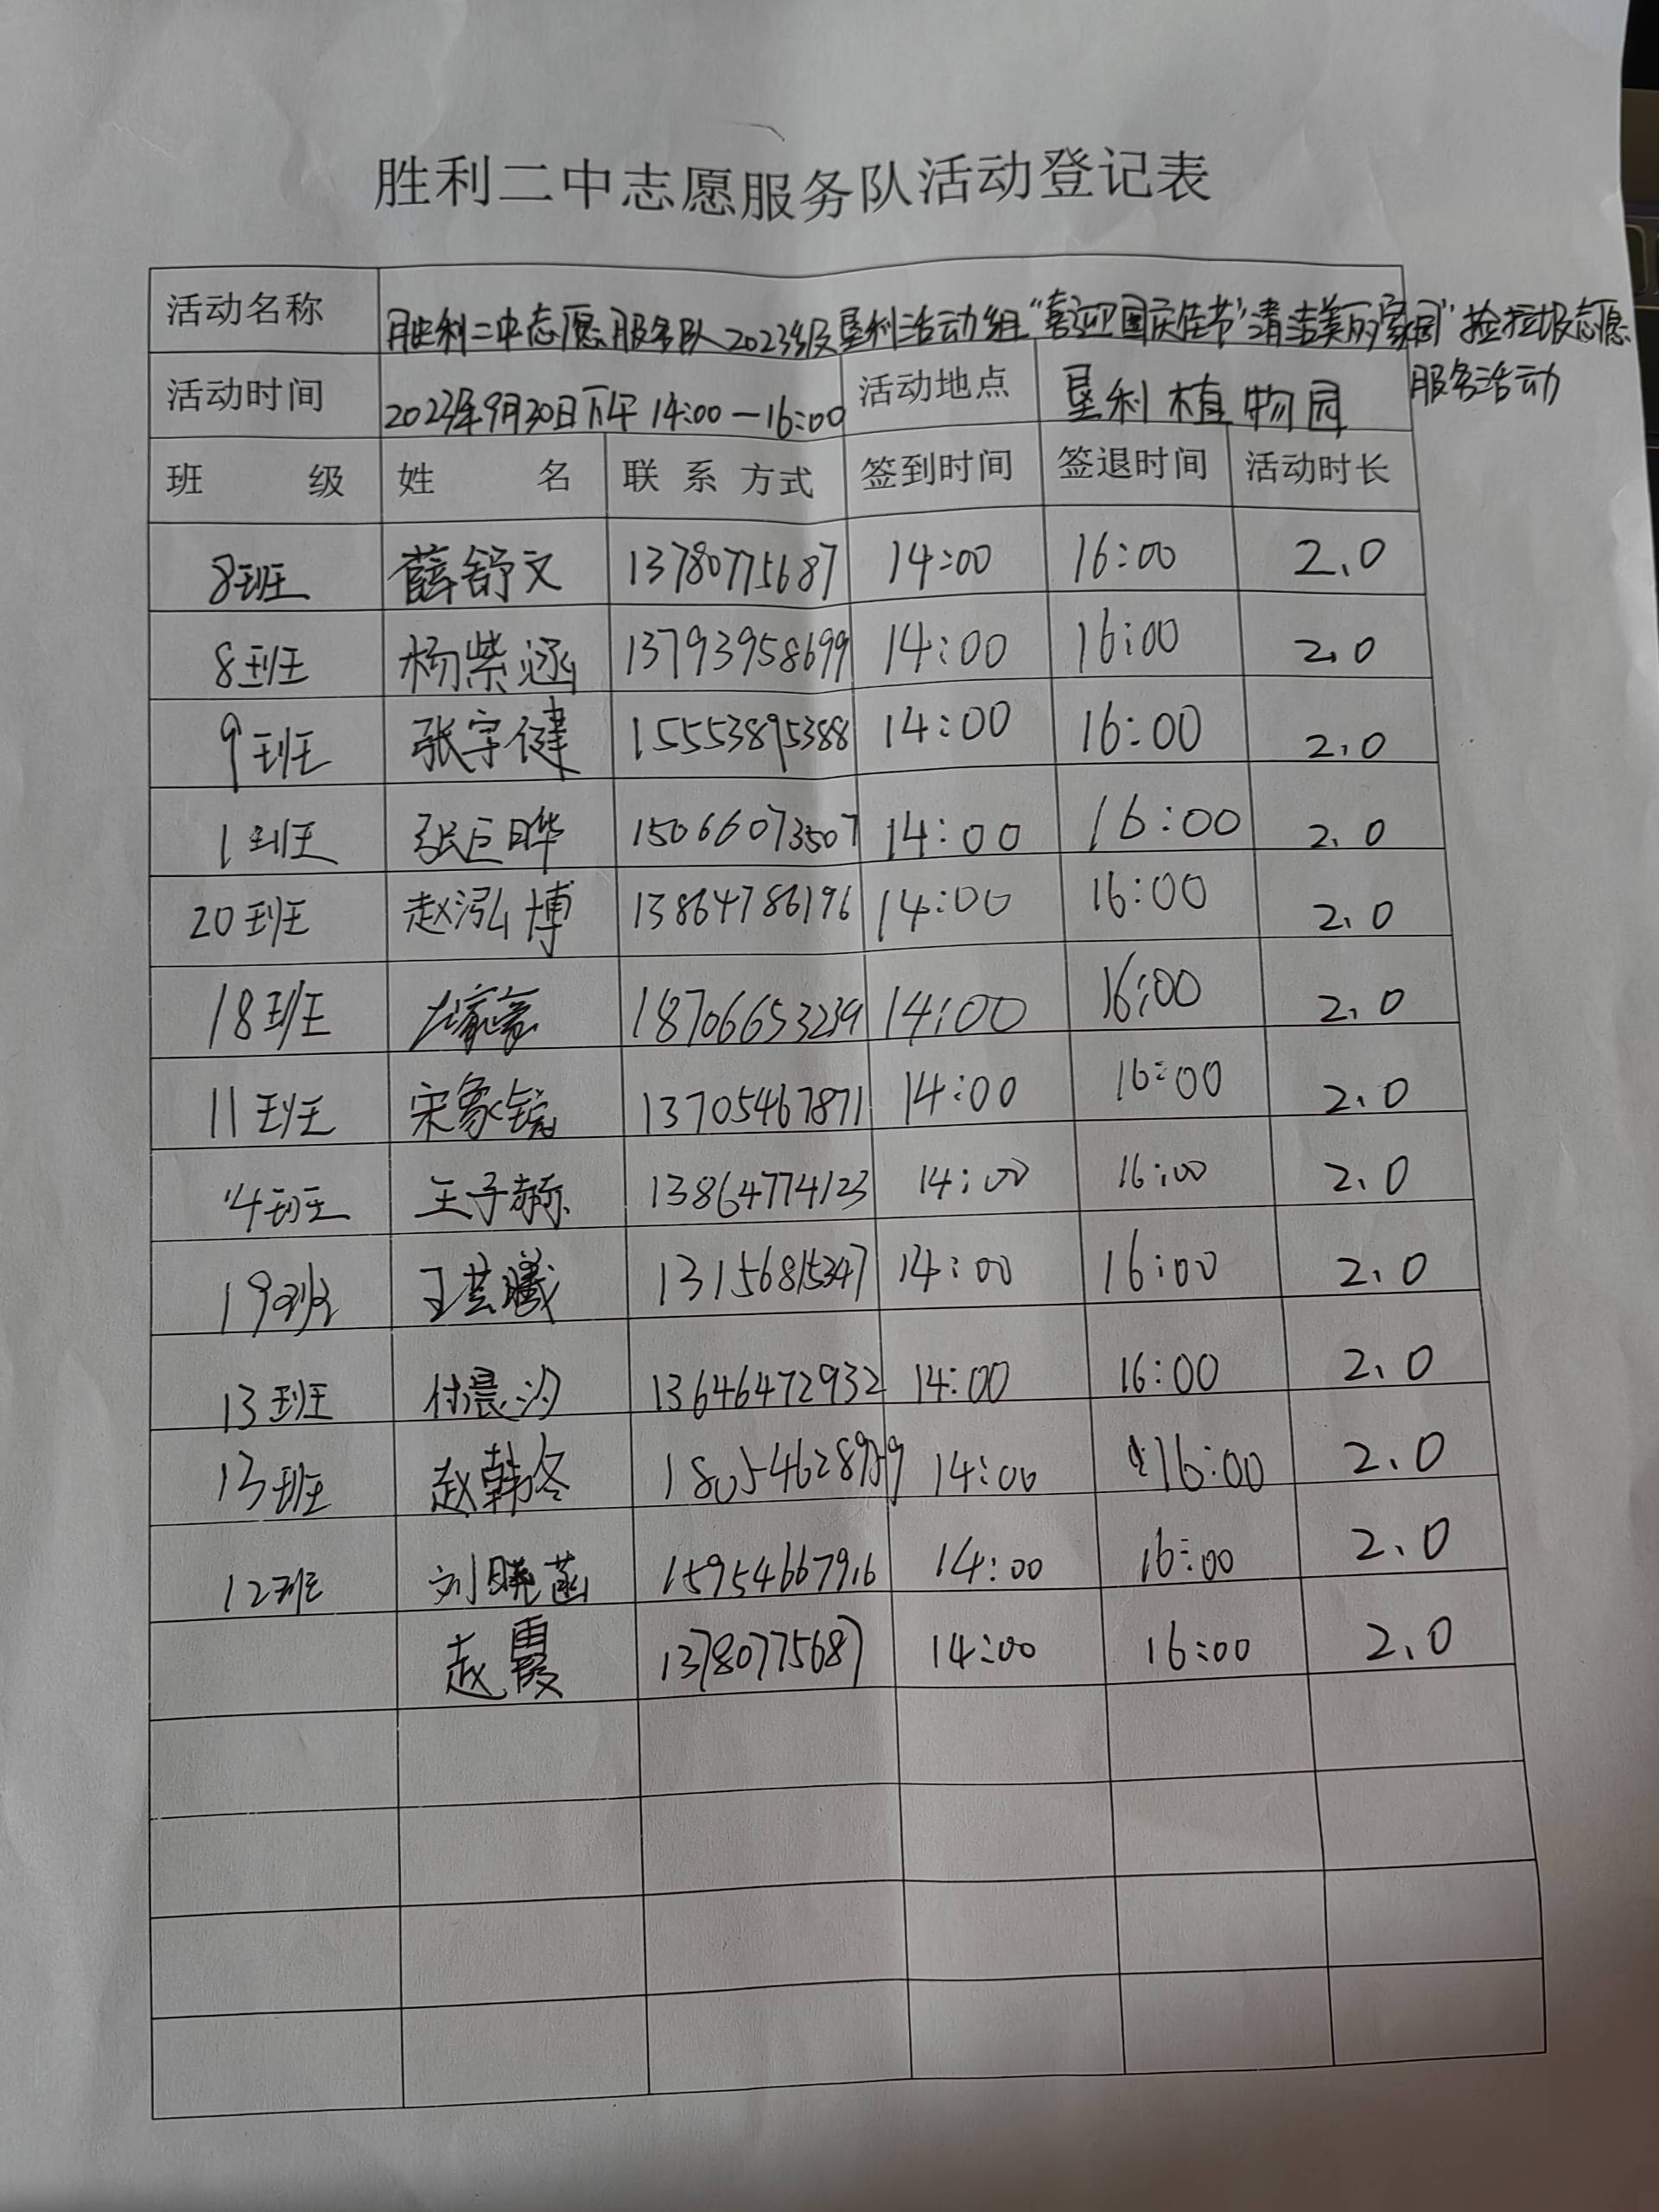 胜利二中志愿服务队活动登记表
活动名称 胜利二中志愿服务队2023级垦利活动组“喜迎国庆佳节，清洁美丽家园”捡垃圾志愿
服务活动
活动时间 2023年9月30日下午14:00—16:00 活动地点 垦利植物园
班 级 姓 名 联系方式 签到时间 签退时间 活动时长
8班 薛舒文 13780775687 14:00 16:00 2.0
8班 杨紫涵 13793958699 14:00 16:00 2.0
9班 张宇健 15553895388 14:00 16:00 2.0
1班 张巨晔 15066073507 14:00 16:00 2.0
20班 赵泓博 13864786196 14:00 16:00 2.0
18班 18706653239 14:00 16:00 2.0
11班 宋家锐 13705467871 14:00 16:00 2.0
4班 王子赫 13864774123 14:00 16:00 2.0
19班 王芸曦 13156815347 14:00 16:00 2.0
13班 付晨汐 13646472932 14:00 16:00 2.0
13班 赵韩冬 14:00 16:00 2.0
12班 刘晓菡 15954667916 14:00 16:00 2.0
赵霞 13780775687 14:00 16:00 2.0